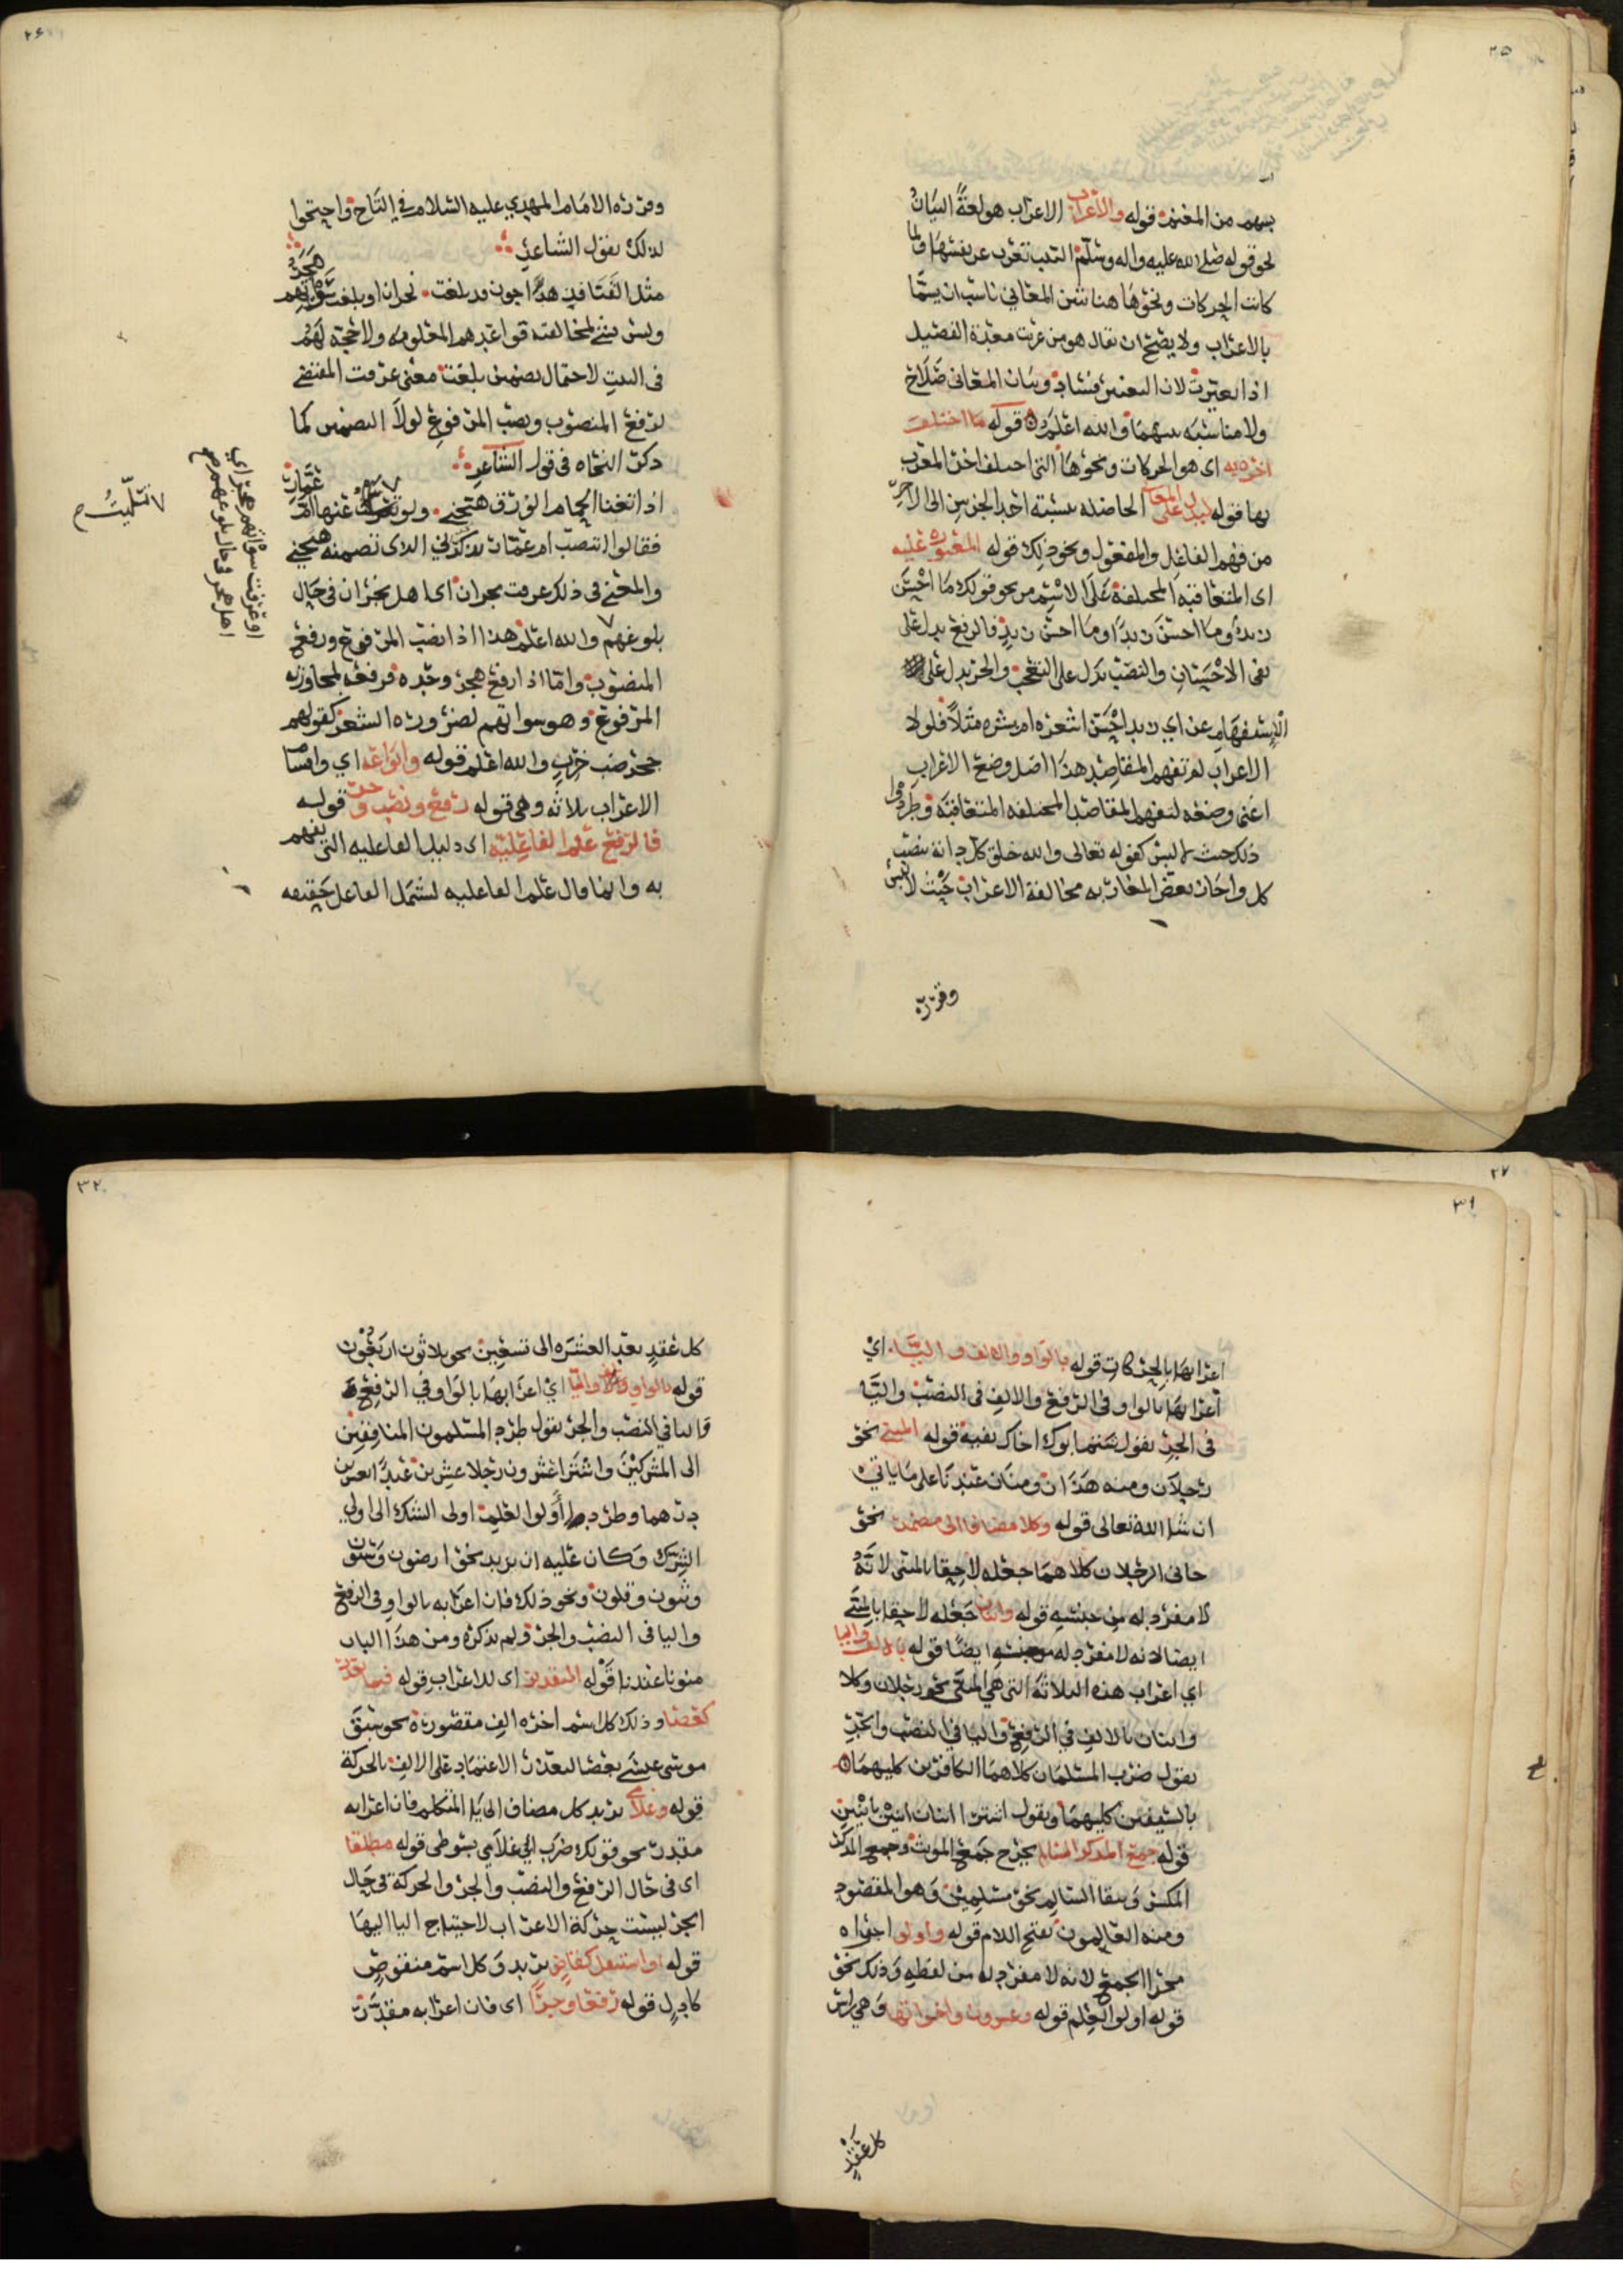 ٢٥
بسهم من المغنم قوله والاعراب الاعراب هو لغةً البيان
لحو قوله صلى الله عليه واله وسلم الثيب تعرب عن نفسها ولما
كانت الحركات ونحوها هنا تبين المعاني ناسب ان يسمّا
بالاعراب ولا يصح ان يقال هو من عربت معدة الفصيل
اذا تغيرت لان التغيير فساد وبيان المعاني صلاح
ولا مناسبه بينهما والله اعلم قوله ما اختلف
اخره به اى هو الحركات ونحوها التى اختلف اخر المعرب
بها قوله ليدل على المعاني الحاصله بنسبة احد الجزين الى الاخر
من فهم الفاعل والمفعول ونحو ذلك قوله المعتوره عليه
اى المتعاقبه المختلفة على الاسم من نحو قولك ما احسن
زيدٌ وما احسن زيدًا وما احسن زيدٍ فالرفع يدل على
نفى الاحسان والنصب يدل على التعجب والجر يدل على
الاستفهام عن اي زيد احسن اشعره ام بشره مثلاً فلولا
الاعراب لم تفهم المقاصد هذا اصل وضع الاعراب
اعنى وضعه لتفهم المقاصد المختلفه المتعاقبه وطردوا
ذلك حيث لا لبس كقوله تعالى والله خلق كل دابة بنصب
كل واجاز بعض المغاربه مخالفة الاعراب حيث لا لبس
وقرره
٢٦
وقرره الامام المهدي عليه السلام في التاج واحتجوا
لذلك بقول الشاعر
مثل القنافذ هداجون قد بلغت نجران او بلغت سواتهم هجر
وليس بشي لمخالفته قواعدهم المعلومه ولا حجة لهم
فى البيت لاحتمال تضمين بلغت معنى عرفت المقتضي
لرفع المنصوب ونصب المرفوع لولا التضمين كما
ذكر النحاه فى قول الشاعر
اذا تغنا الحمام الورق هيجني ولو تعزيت عنها ام عمار
تسليت
فقالوا انتصب ام عمار بذكرني الذى تضمنه هيجني
والمعنى فى ذلك عرفت نجران اى اهل نجران فى حال
بلوغهم والله اعلم هذا اذا نصب المرفوع ورفع
او عرفت سواتهم هجر اى
اهل هجر فى حال بلوغهم
المنصوب واما اذا رفع هجر وحده فرفعه لمجاورة
المرفوع وهو سواتهم لضرورة الشعر كقولهم
جحر ضب خرب والله اعلم قوله وانواعه اي واقسام
الاعراب ثلاثه وهي قوله رفع ونصب وجر قوله
فالرفع علم الفاعليه اى دليل الفاعليه التى يفهم
به وانما قال علم الفاعليه ليشمل الفاعل حقيقه
٢٧
٣١
اعرابها بالحركات قوله بالواو والالف والياء اي
اعرابها بالواو فى الرفع والالف فى النصب واليا
فى الجر تقول ابوك اخاك بفيه قوله المثنى نحو
رجلان ومنه هذان ومنان عندنا على ما ياتي
ان شا الله تعالى قوله وكلا مضافا الى مضمر نحو
جانى الرجلان كلاهما جعله لاحقا بالمثنى لانه
لا مفرد له من جنسه قوله واثنان جعله لاحقا بالمثنى
ايضا لانه لا مفرد له من جنسه ايضا قوله بالالف واليا
اي اعراب هذه الثلاثة التى هي المثنى نحو رجلان وكلا
واثنان بالالف في الرفع واليا في النصب والجر
تقول ضرب المسلمان كلاهما الكافرين كليهما
بالسيفين كليهما وتقول اشترا اثنان اثنين باثنين
قوله جمع المذكر السالم يخرج جمع المونث وجمع المذكر
المكسر ويبقا السالم نحو مسلمين وهو المقصود
ومنه العالمون بفتح اللام قوله واولو اجراه
مجرا الجمع لانه لا مفرد له من لفظه وذلك نحو
قوله اولوا العلم قوله وعشرون واخواتها وهي اسم
كل عقد
٣٢
كل عقد بعد العشره الى تسعين نحو ثلاثون اربعون
قوله بالواو واليا اي اعرابها بالواو في الرفع
واليا في النصب والجر تقول طرد المسلمون المنافقين
الى المشركين واشترا عشرون رجلا عشرين عبدًا بعشرين
درهما وطرد اولوا العلم اولى الشك الى اولي
الشرك وكان عليه ان يزيد نحو ارضون وسنون
وثبون وقلون ونحو ذلك فان اعرابه بالواو فى الرفع
واليا فى النصب والجر ولم يذكره ومن هذا الباب
منونا عندنا قوله التقدير اى للاعراب قوله فيما تعذر
كعصا وذلك كل اسم اخره الف مقصورة نحو سبق
موسى عيسى بعصا لتعذر الاعتماد على الالف بالحركة
قوله وغلامي يريد كل مضاف الى يا المتكلم فان اعرابه
مقدر نحو قولك ضرب ابي غلامي بسوطى قوله مطلقا
اى فى حال الرفع والنصب والجر والحركة فى حال
الجر ليست حركة الاعراب لاحتياج اليا اليها
قوله او استثقل كقاضٍ يريد وكل اسم منقوص
كادلٍ قوله رفعا وجرًا اى فان اعرابه مقدر